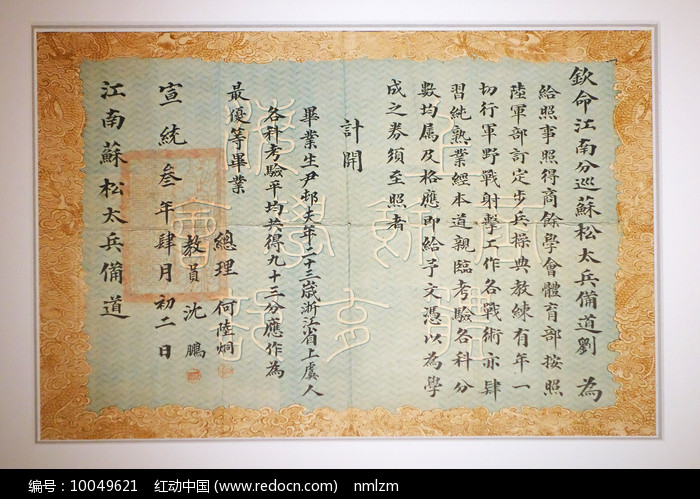 欽命江南分巡蘇松太兵備道劉 為
給照事照得商餘學會體育部按照
陸軍部訂定步兵操典教練有年一
切行軍野戰射擊工作各戰術亦肆
習純熟業經本道親臨考驗各科分
數均屬及格應即給予文憑以為學
成之券須至照者
計開
畢業生尹邨夫年二十三歲浙江省上虞人
各科考驗平均共得九十三分應作為
最優等畢業
總理 何陸炯
教員 沈鵬
宣統叁年肆月初二日
江南蘇松太兵備道
编号：10049621 红动中国 (www.redocn.com) nmlzm